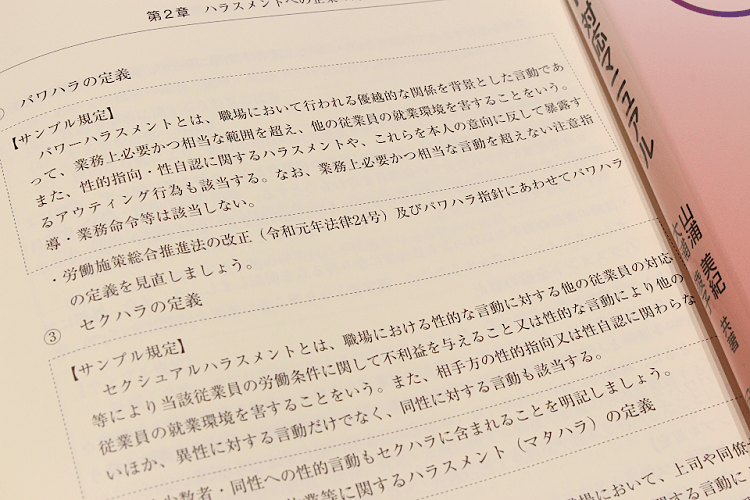 第2章 ハラスメントへの企業の
パワハラの定義
【サンプル規定】
パワーハラスメントとは、職場において行われる優越的な関係を背景とした言動であ
って、業務上必要かつ相当な範囲を超え、他の従業員の就業環境を害することをいう。
また、性的指向・性自認に関するハラスメントや、これらを本人の意向に反して暴露す
るアウティング行為も該当する。なお、業務上必要かつ相当な言動を超えない注意指
導・業務命令等は該当しない。
・労働施策総合推進法の改正（令和元年法律24号）及びパワハラ指針にあわせてパワハラ
の定義を見直しましょう。
③ セクハラの定義
【サンプル規定】
セクシュアルハラスメントとは、職場における性的な言動に対する他の従業員の対応
等により当該従業員の労働条件に関して不利益を与えること又は性的な言動により他の
従業員の就業環境を害することをいう。また、相手方の性的指向又は性自認に関わらな
いほか、異性に対する言動だけでなく、同性に対する言動も該当する。
少数者・同性への性的言動もセクハラに含まれることを明記しましょう。
業等に関するハラスメント（マタハラ）の定義
場において、上司や同僚
関する言動に
対応マニュアル
山浦 美紀
共著